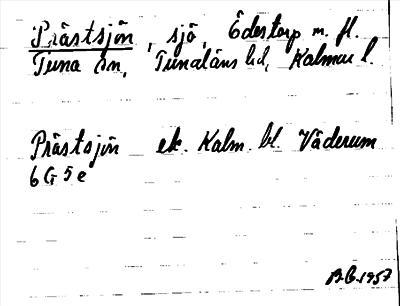 Prästsjön, sjö, Ödestorp m. fl.
Tuna sn, Tunaläns hd, Kalmar l.
Prästsjön ek. Kalm. bl. Väderum
6G5e
B.G. 1957